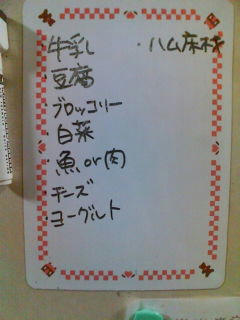 牛乳
・豆腐
ブロッコリー
・白菜
・魚or肉
・チーズ
ヨーグルト
・ハム床材